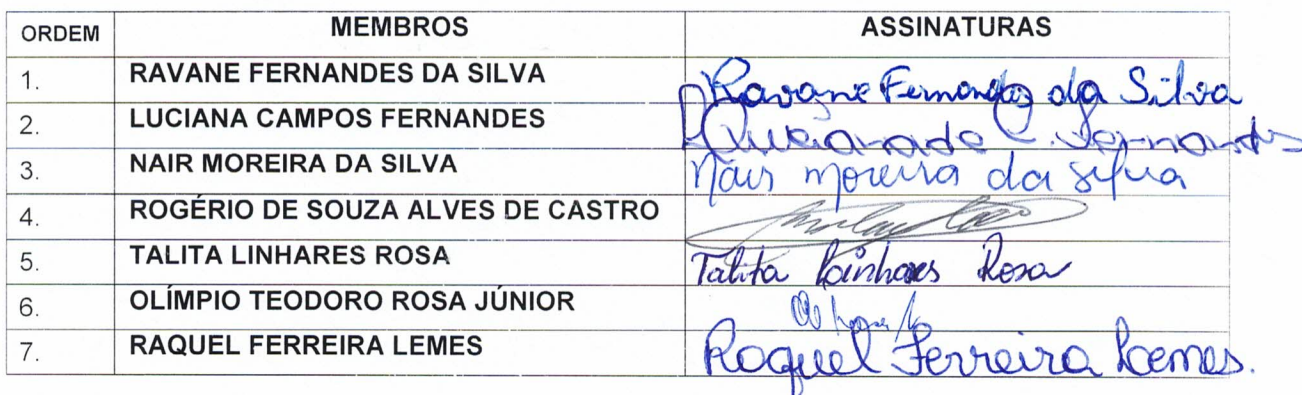 ORDEM MEMBROS ASSINATURAS
1. RAVANE FERNANDES DA SILVA Ravane Fernandes da Silva
2. LUCIANA CAMPOS FERNANDES C. Fernandes
3. NAIR MOREIRA DA SILVA Nair moreira da silva
4. ROGÉRIO DE SOUZA ALVES DE CASTRO
5. TALITA LINHARES ROSA Talita Linhares Rosa
6. OLÍMPIO TEODORO ROSA JÚNIOR
7. RAQUEL FERREIRA LEMES Raquel Ferreira Lemes.